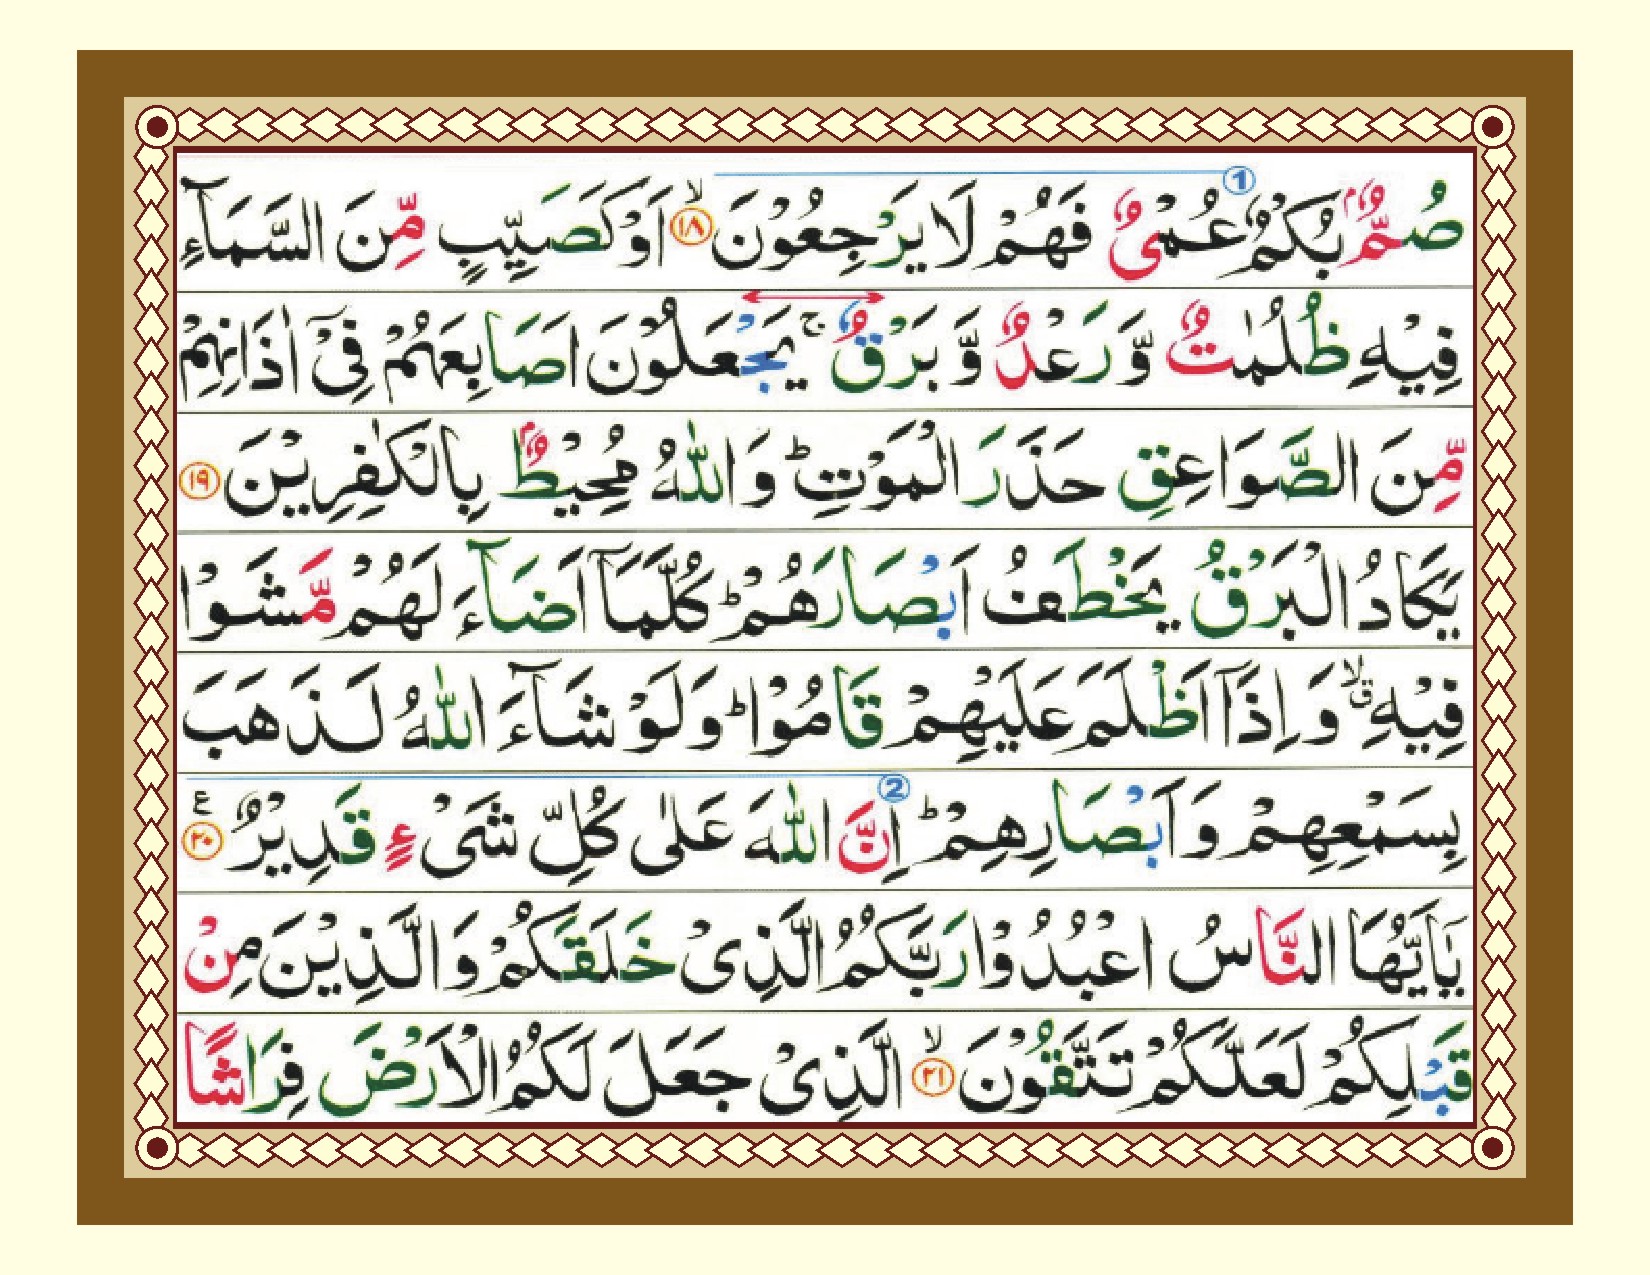 صُمٌّۢ بُكْمٌ عُمْیٌ فَهُمْ لَا یَرْجِعُوْنَ ۙ﴿۱۸﴾ اَوْ كَصَیِّبٍ مِّنَ السَّمَآءِ
فِیْهِ ظُلُمٰتٌ وَّ رَعْدٌ وَّ بَرْقٌ ۚ یَجْعَلُوْنَ اَصَابِعَهُمْ فِیْۤ اٰذَانِهِمْ
مِّنَ الصَّوَاعِقِ حَذَرَ الْمَوْتِ ؕ وَ اللّٰهُ مُحِیْطٌۢ بِالْكٰفِرِیْنَ ﴿۱۹﴾
یَكَادُ الْبَرْقُ یَخْطَفُ اَبْصَارَهُمْ ؕ كُلَّمَاۤ اَضَآءَ لَهُمْ مَّشَوْا
فِیْهِ ۙۗ وَ اِذَاۤ اَظْلَمَ عَلَیْهِمْ قَامُوْا ؕ وَ لَوْ شَآءَ اللّٰهُ لَذَهَبَ
بِسَمْعِهِمْ وَ اَبْصَارِهِمْ ؕ اِنَّ اللّٰهَ عَلٰی كُلِّ شَیْءٍ قَدِیْرٌ ﴿۲۰﴾ ع
یٰۤاَیُّهَا النَّاسُ اعْبُدُوْا رَبَّكُمُ الَّذِیْ خَلَقَكُمْ وَ الَّذِیْنَ مِنْ
قَبْلِكُمْ لَعَلَّكُمْ تَتَّقُوْنَ ۙ﴿۲۱﴾ الَّذِیْ جَعَلَ لَكُمُ الْاَرْضَ فِرَاشًا